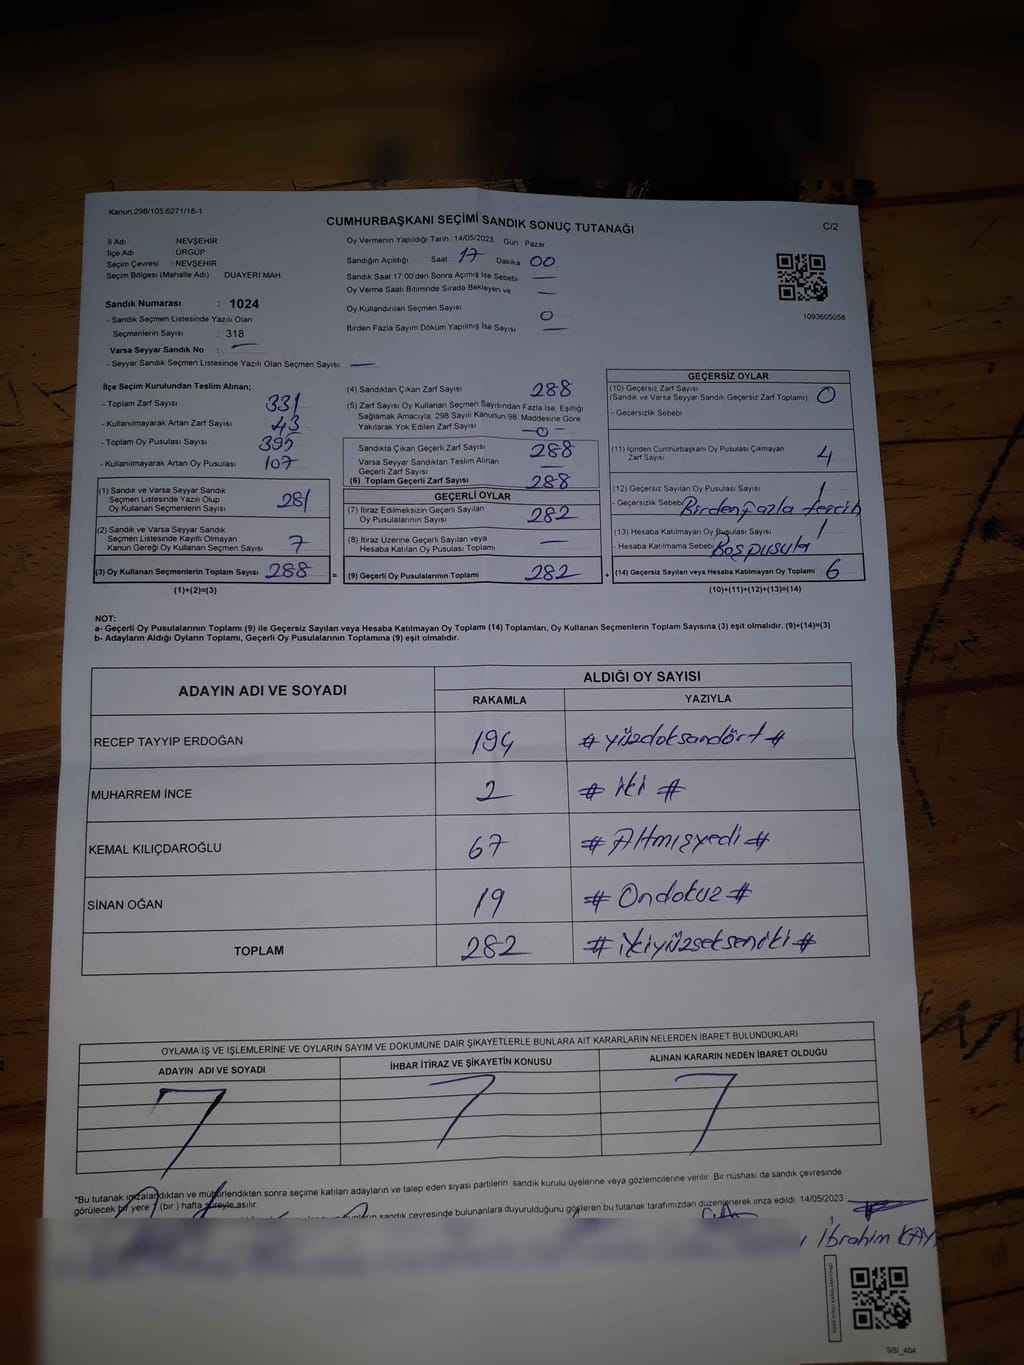 Kanun:298/105;6271/18-1
CUMHURBAŞKANI SEÇİMİ SANDIK SONUÇ TUTANAĞI
C/2
İl Adı : NEVŞEHİR
İlçe Adı : ÜRGÜP
Seçim Çevresi : NEVŞEHİR
Seçim Bölgesi (Mahalle Adı) DUAYERİ MAH
Sandık Numarası : 1024
- Sandık Seçmen Listesinde Yazılı Olan
Seçmenlerin Sayısı : 318
Varsa Seyyar Sandık No : —
- Seyyar Sandık Seçmen Listesinde Yazılı Olan Seçmen Sayısı: —
Oy Vermenin Yapıldığı Tarih :14/05/2023 Gün : Pazar
Sandığın Açıldığı Saat 17 Dakika 00
Sandık Saat 17:00'den Sonra Açılmış İse Sebebi —
Oy Verme Saati Bitiminde Sırada Bekleyen ve —
Oy Kullandırılan Seçmen Sayısı 0
Birden Fazla Sayım Döküm Yapılmış İse Sayısı —
1093605058
İlçe Seçim Kurulundan Teslim Alınan;
- Toplam Zarf Sayısı 331
- Kullanılmayarak Artan Zarf Sayısı 43
- Toplam Oy Pusulası Sayısı 395
- Kullanılmayarak Artan Oy Pusulası 107
(1) Sandık ve Varsa Seyyar Sandık
Seçmen Listesinde Yazılı Olup
Oy Kullanan Seçmenlerin Sayısı 281
(2) Sandık ve Varsa Seyyar Sandık
Seçmen Listesinde Kayıtlı Olmayan
Kanun Gereği Oy Kullanan Seçmen Sayısı 7
(3) Oy Kullanan Seçmenlerin Toplam Sayısı 288
(1)+(2)=(3)
(4) Sandıktan Çıkan Zarf Sayısı 288
(5) Zarf Sayısı Oy Kullanan Seçmen Sayısından Fazla İse, Eşitliği
Sağlamak Amacıyla; 298 Sayılı Kanunun 98. Maddesine Göre
Yakılarak Yok Edilen Zarf Sayısı -0-
Sandıkta Çıkan Geçerli Zarf Sayısı 288
Varsa Seyyar Sandıktan Teslim Alınan
Geçerli Zarf Sayısı —
(6) Toplam Geçerli Zarf Sayısı 288
GEÇERLİ OYLAR
(7) İtiraz Edilmeksizin Geçerli Sayılan
Oy Pusulalarının Sayısı 282
(8) İtiraz Üzerine Geçerli Sayılan veya
Hesaba Katılan Oy Pusulası Toplamı —
= (9) Geçerli Oy Pusulalarının Toplamı 282
GEÇERSİZ OYLAR
(10) Geçersiz Zarf Sayısı
(Sandık ve Varsa Seyyar Sandık Geçersiz Zarf Toplamı) 0
- Geçersizlik Sebebi
(11) İçinden Cumhurbaşkanı Oy Pusulası Çıkmayan
Zarf Sayısı 4
(12) Geçersiz Sayılan Oy Pusulası Sayısı 1
- Geçersizlik Sebebi Birdenfazla tercih
(13) Hesaba Katılmayan Oy Pusulası Sayısı 1
- Hesaba Katılmama Sebebi Boş pusula
+ (14) Geçersiz Sayılan veya Hesaba Katılmayan Oy Toplamı 6
(10)+(11)+(12)+(13)=(14)
NOT:
a- Geçerli Oy Pusulalarının Toplamı (9) ile Geçersiz Sayılan veya Hesaba Katılmayan Oy Toplamı (14) Toplamları, Oy Kullanan Seçmenlerin Toplam Sayısına (3) eşit olmalıdır. (9)+(14)=(3)
b- Adayların Aldığı Oyların Toplamı, Geçerli Oy Pusulalarının Toplamına (9) eşit olmalıdır.
ADAYIN ADI VE SOYADI
ALDIĞI OY SAYISI
RAKAMLA YAZIYLA
RECEP TAYYİP ERDOĞAN 194 # yüzdoksandört #
MUHARREM İNCE 2 # iki #
KEMAL KILIÇDAROĞLU 67 # Altmışyedi #
SİNAN OĞAN 19 # Ondokuz #
TOPLAM 282 # ikiyüzsekseniki #
OYLAMA İŞ VE İŞLEMLERİNE VE OYLARIN SAYIM VE DÖKÜMÜNE DAİR ŞİKAYETLERLE BUNLARA AİT KARARLARIN NELERDEN İBARET BULUNDUKLARI
ADAYIN ADI VE SOYADI İHBAR İTİRAZ VE ŞİKAYETİN KONUSU ALINAN KARARIN NEDEN İBARET OLDUĞU
*Bu tutanak imzalandıktan ve mühürlendikten sonra seçime katılan adayların ve talep eden siyasi partilerin sandık kurulu üyelerine veya gözlemcilerine verilir. Bir nüshası da sandık çevresinde
görülecek bir yere 7 (bir ) hafta süreyle asılır.
sandık çevresinde bulunanlara duyurulduğunu gösteren bu tutanak tarafımızdan düzenlenerek imza edildi. 14/05/2023
İbrahim KAY
SSI_404